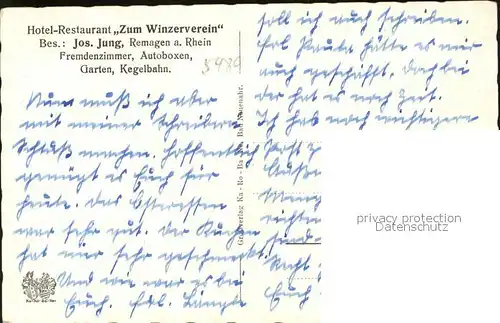 Hotel-Restaurant „Zum Winzerverein“
Bes.: Jos. Jung, Remagen a. Rhein
Fremdenzimmer, Autoboxen,
Garten, Kegelbahn.
Nun muß ich aber
mit meiner Schreiberei
Schluß machen. Hoffentlich
genügt es Euch für
heute. Das Osteressen
war sehr gut. Der Kuchen
hat mir sehr geschmeckt.
Und wie war es bei
Euch.
soll ich auch schreiben.
hätte es mir
auch geschafft, doch bei
der hat es noch Zeit.
Ich hab noch wichtigere
Post
sind
Recht
Euch
privacy protection
Datenschutz